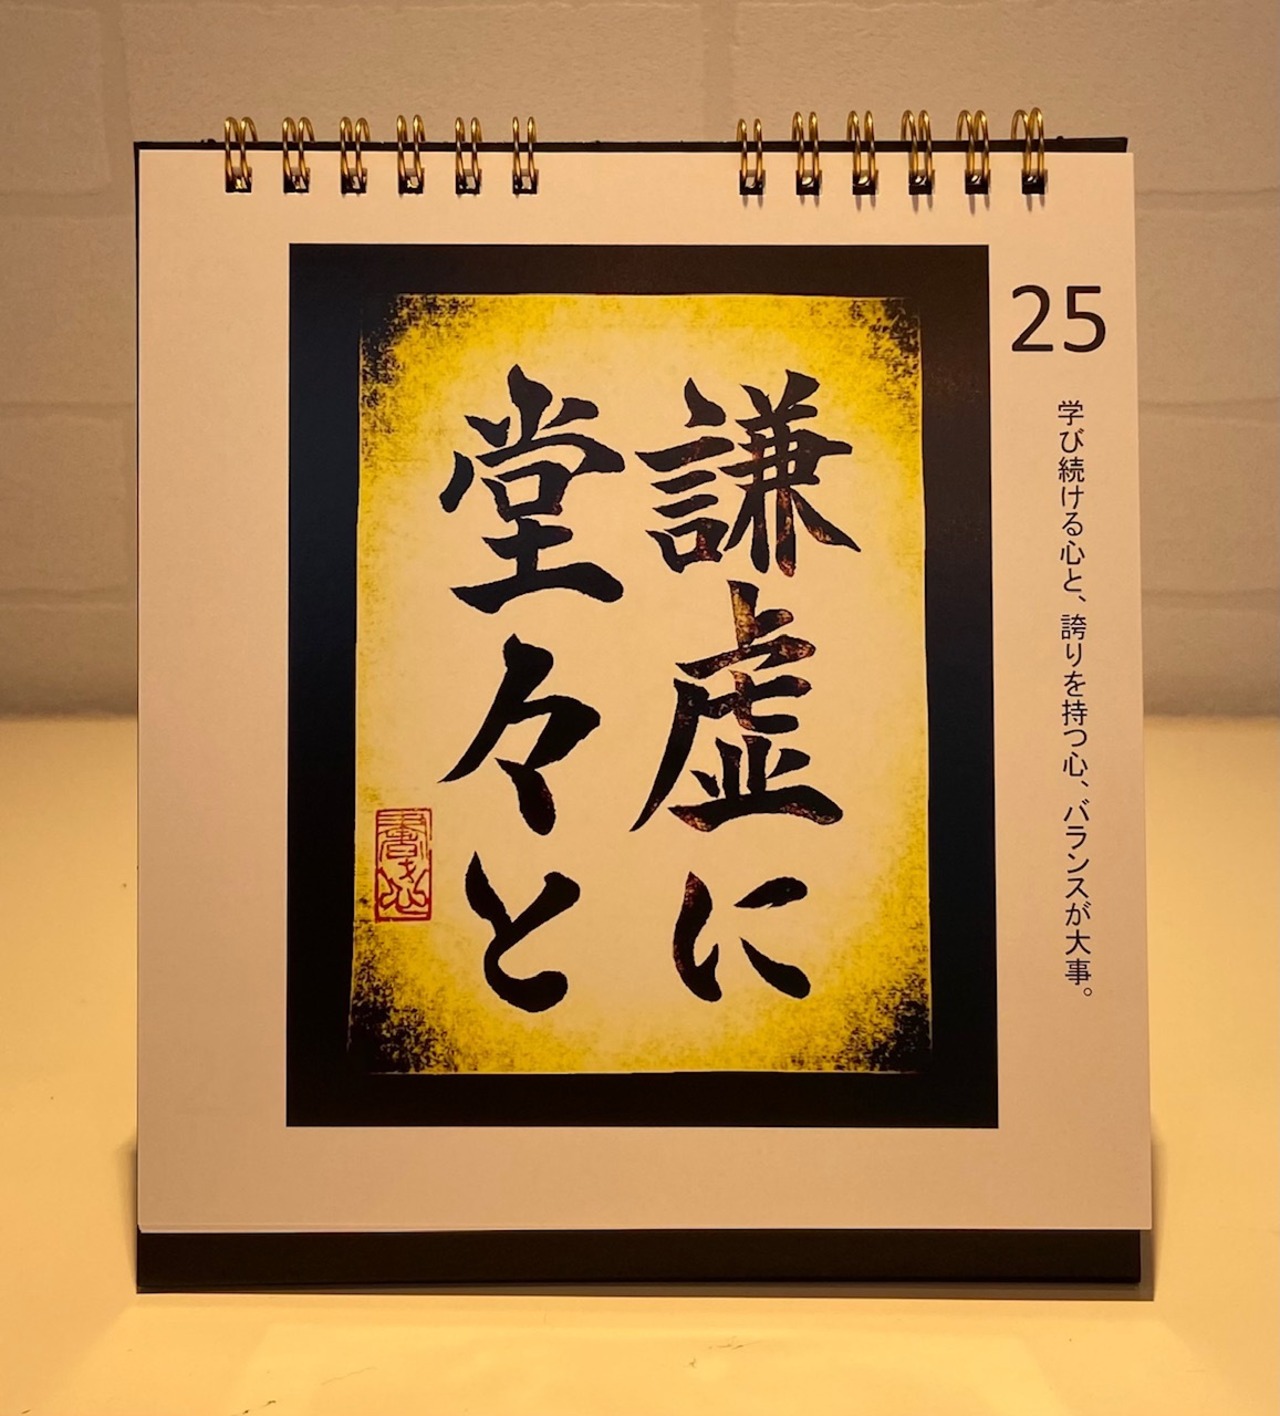 25
学び続ける心と、誇りを持つ心、バランスが大事。
謙虚に
堂々と